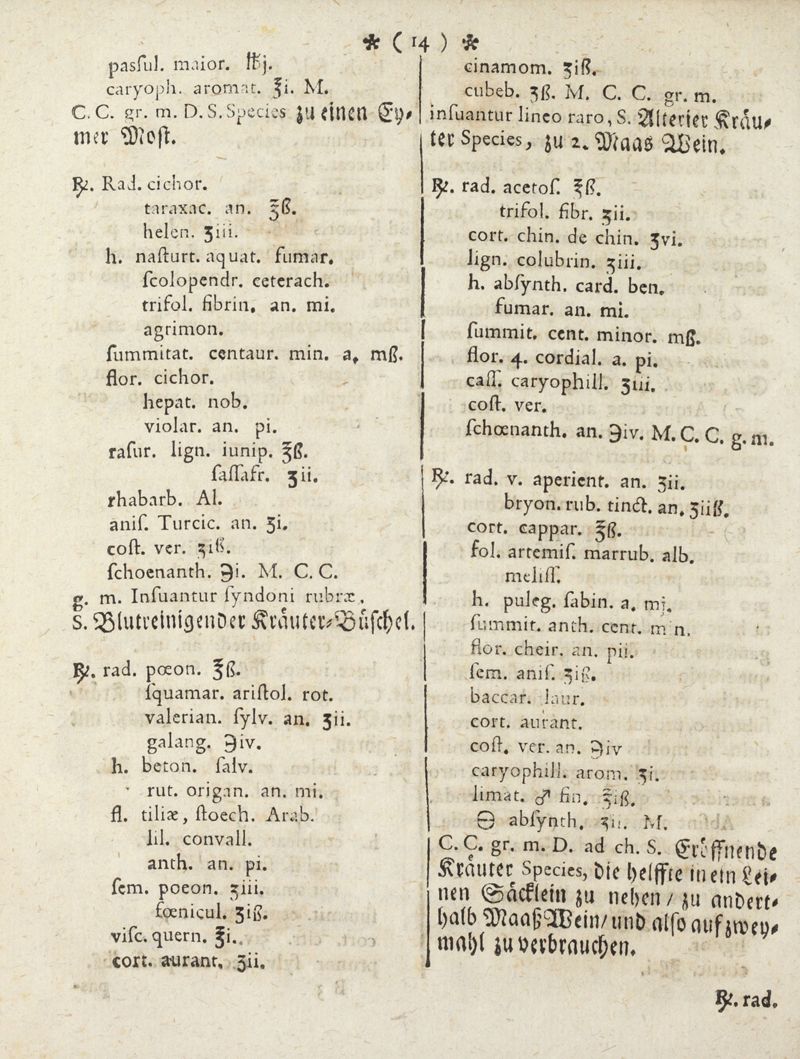 * ( 14 ) *
pasſul. maior. ℔j.
caryoph. aromat. ℥i. M.
C. C. gr. m. D. S. Species zu einen Ey⸗
mer Moſt.
℞. Rad. cichor.
taraxac. an. ℥ß.
helen. ʒiii.
h. naſturt. aquat. fumar.
ſcolopendr. ceterach.
trifol. fibrin. an. mi.
agrimon.
ſummitat. centaur. min. a, mß.
flor. cichor.
hepat. nob.
violar. an. pi.
raſur. lign. iunip. ℥ß.
ſaſſafr. ʒii.
rhabarb. Al.
aniſ. Turcic. an. ʒi.
coſt. ver. ʒiß.
ſchoenanth. ℈i. M. C. C.
g. m. Inſuantur ſyndoni rubræ.
S. Blutreinigender Kräuter⸗Büſchel.
℞. rad. pœon. ℥ß.
ſquamar. ariſtol. rot.
valerian. ſylv. an. ʒii.
galang. ℈iv.
h. beton. ſalv.
rut. origan. an. mi.
fl. tiliæ, ſtoech. Arab.
lil. convall.
anth. an. pi.
ſem. poeon. ʒiii.
fœnicul. ʒiß.
viſc. quern. ℥i.
cort. aurant. ʒii.
cinamom. ʒiß.
cubeb. ʒß. M. C. C. gr. m.
inſuantur linteo raro, S. Alterier Kräu⸗
ter Species, zu 2. Maas Wein.
℞. rad. acetoſ. ℥ß.
trifol. fibr. ʒii.
cort. chin. de chin. ʒvi.
lign. colubrin. ʒiii.
h. abſynth. card. ben.
fumar. an. mi.
ſummit. cent. minor. mß.
flor. 4. cordial. a. pi.
caſſ. caryophill. ʒiii.
coſt. ver.
ſchœnanth. an. ℈iv. M. C. C. g. m.
℞. rad. v. aperient. an. ʒii.
bryon. rub. tinct. an. ʒiiß.
cort. cappar. ℥ß.
fol. artemiſ. marrub. alb.
meliſſ.
h. puleg. ſabin. a. mj.
ſummit. anth. cent. min.
flor. cheir. an. pii.
ſem. aniſ. ʒiß.
baccar. laur.
cort. aurant.
coſt. ver. an. ℈iv
caryophill. arom. ʒi.
limat. ♂ fin. ℥iß.
🜔 abſynth. ʒii. M.
C. C. gr. m. D. ad ch. S. Eröffnende
Kräuter Species, die helffte in ein Lei⸗
nen Säcklein zu nehen / zu andert⸗
halb Maaß Wein / und alſo auf zwey⸗
mahl zu verbrauchen.
℞. rad.